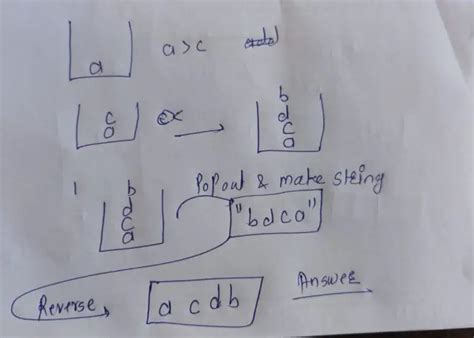 a   a>c
c
a   b
d
c
a
1   b
d
c
a
Popout & make string
"bdca"
Reverse   a c d b   Answer